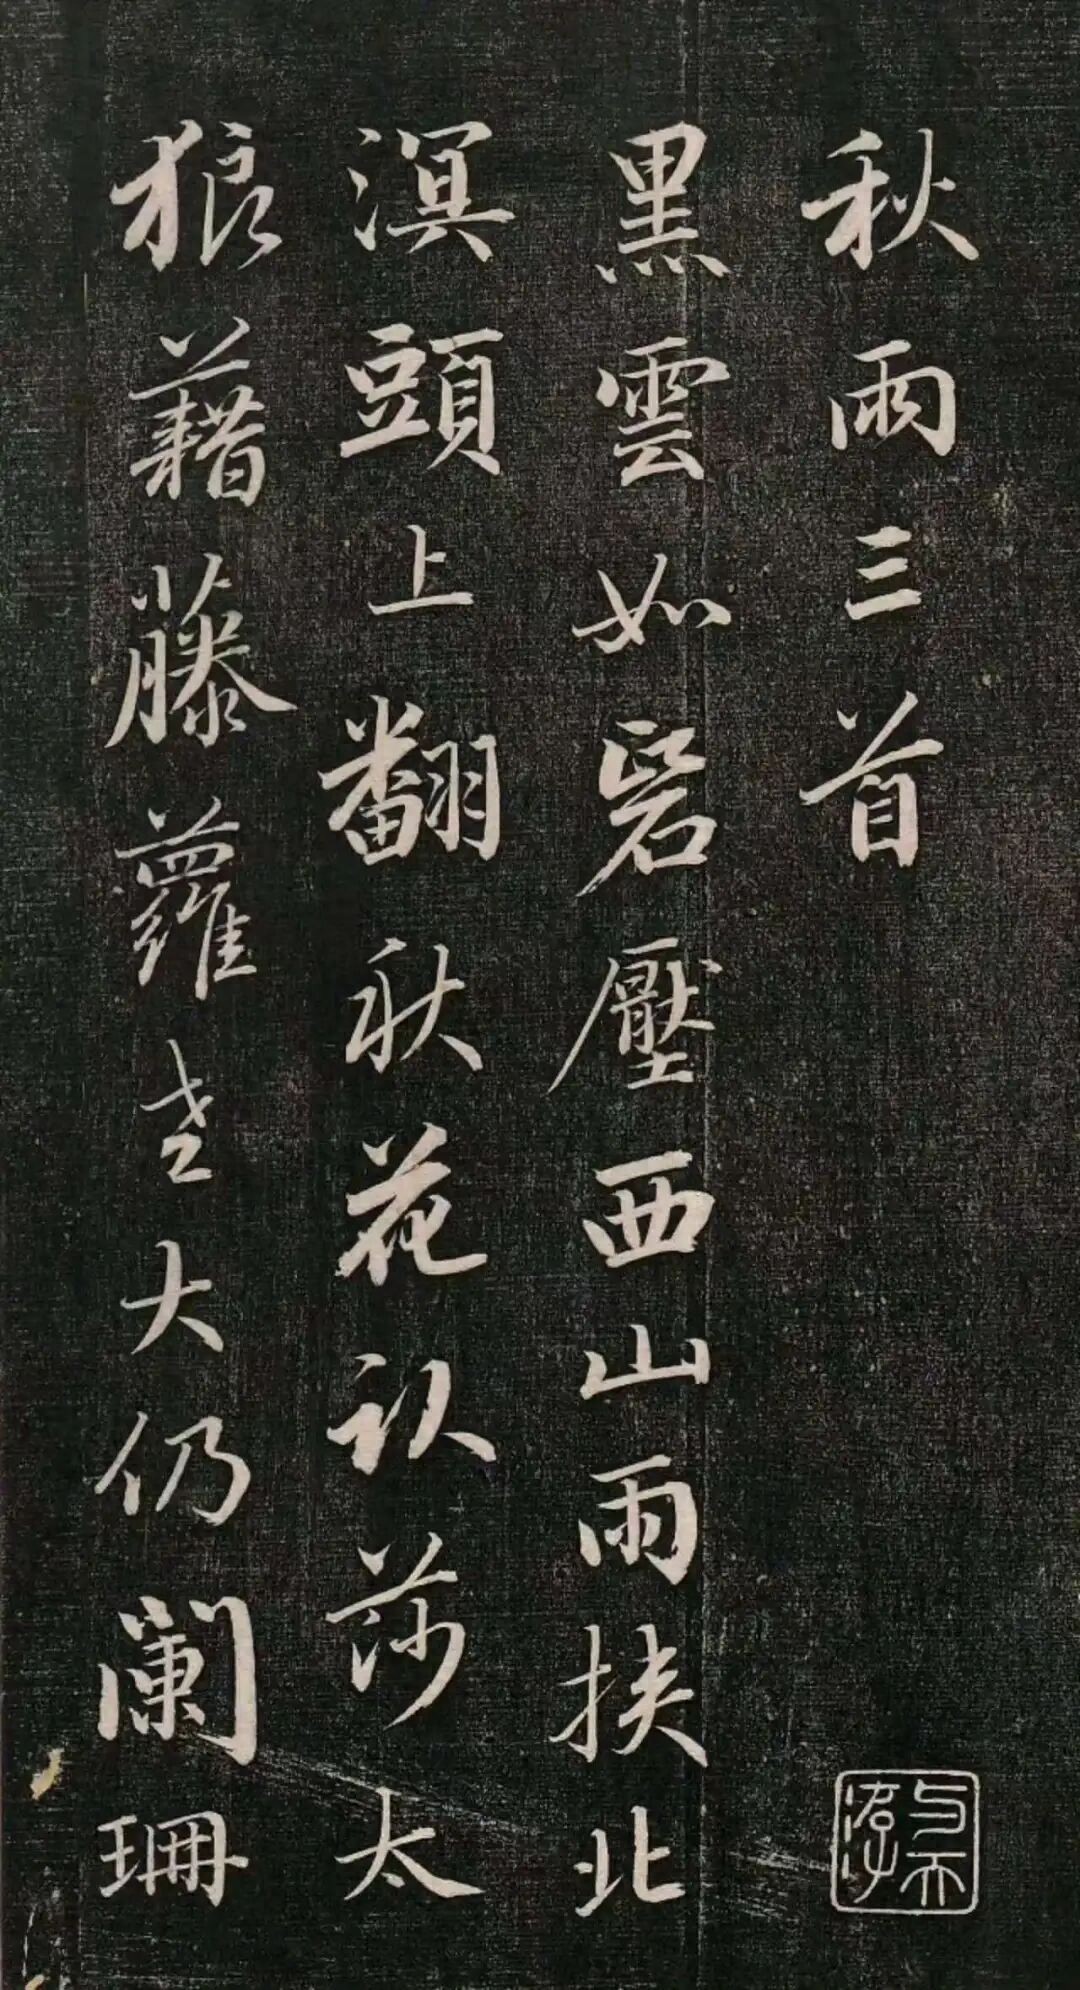 秋雨三首
黑雲如礐壓西山雨挾北
溟頭上翻秋花砍莎太
狼藉藤蘿老大仍闌珊